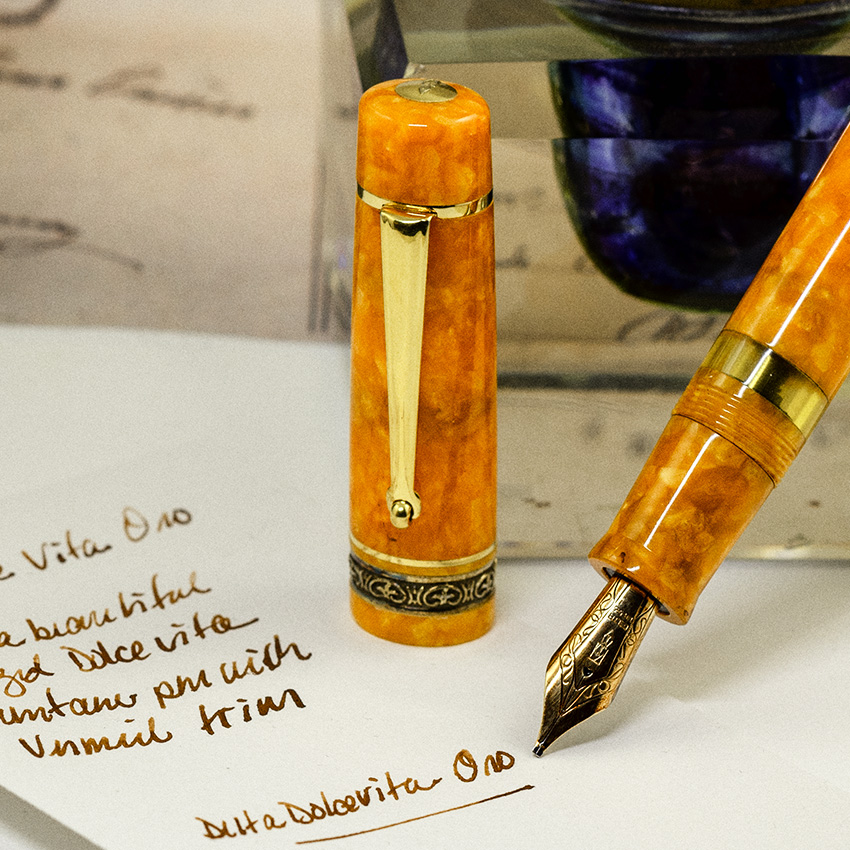 e Vita Oro
a beautiful
Dolcevita
untane pen with
Vermeil trim
Delta Dolcevita Oro